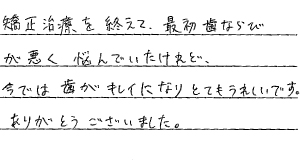 矯正治療を終えて、最初歯ならび
が悪く悩んでいたけれど、
今では歯がキレイになりとてもうれしいです。
ありがとうございました。